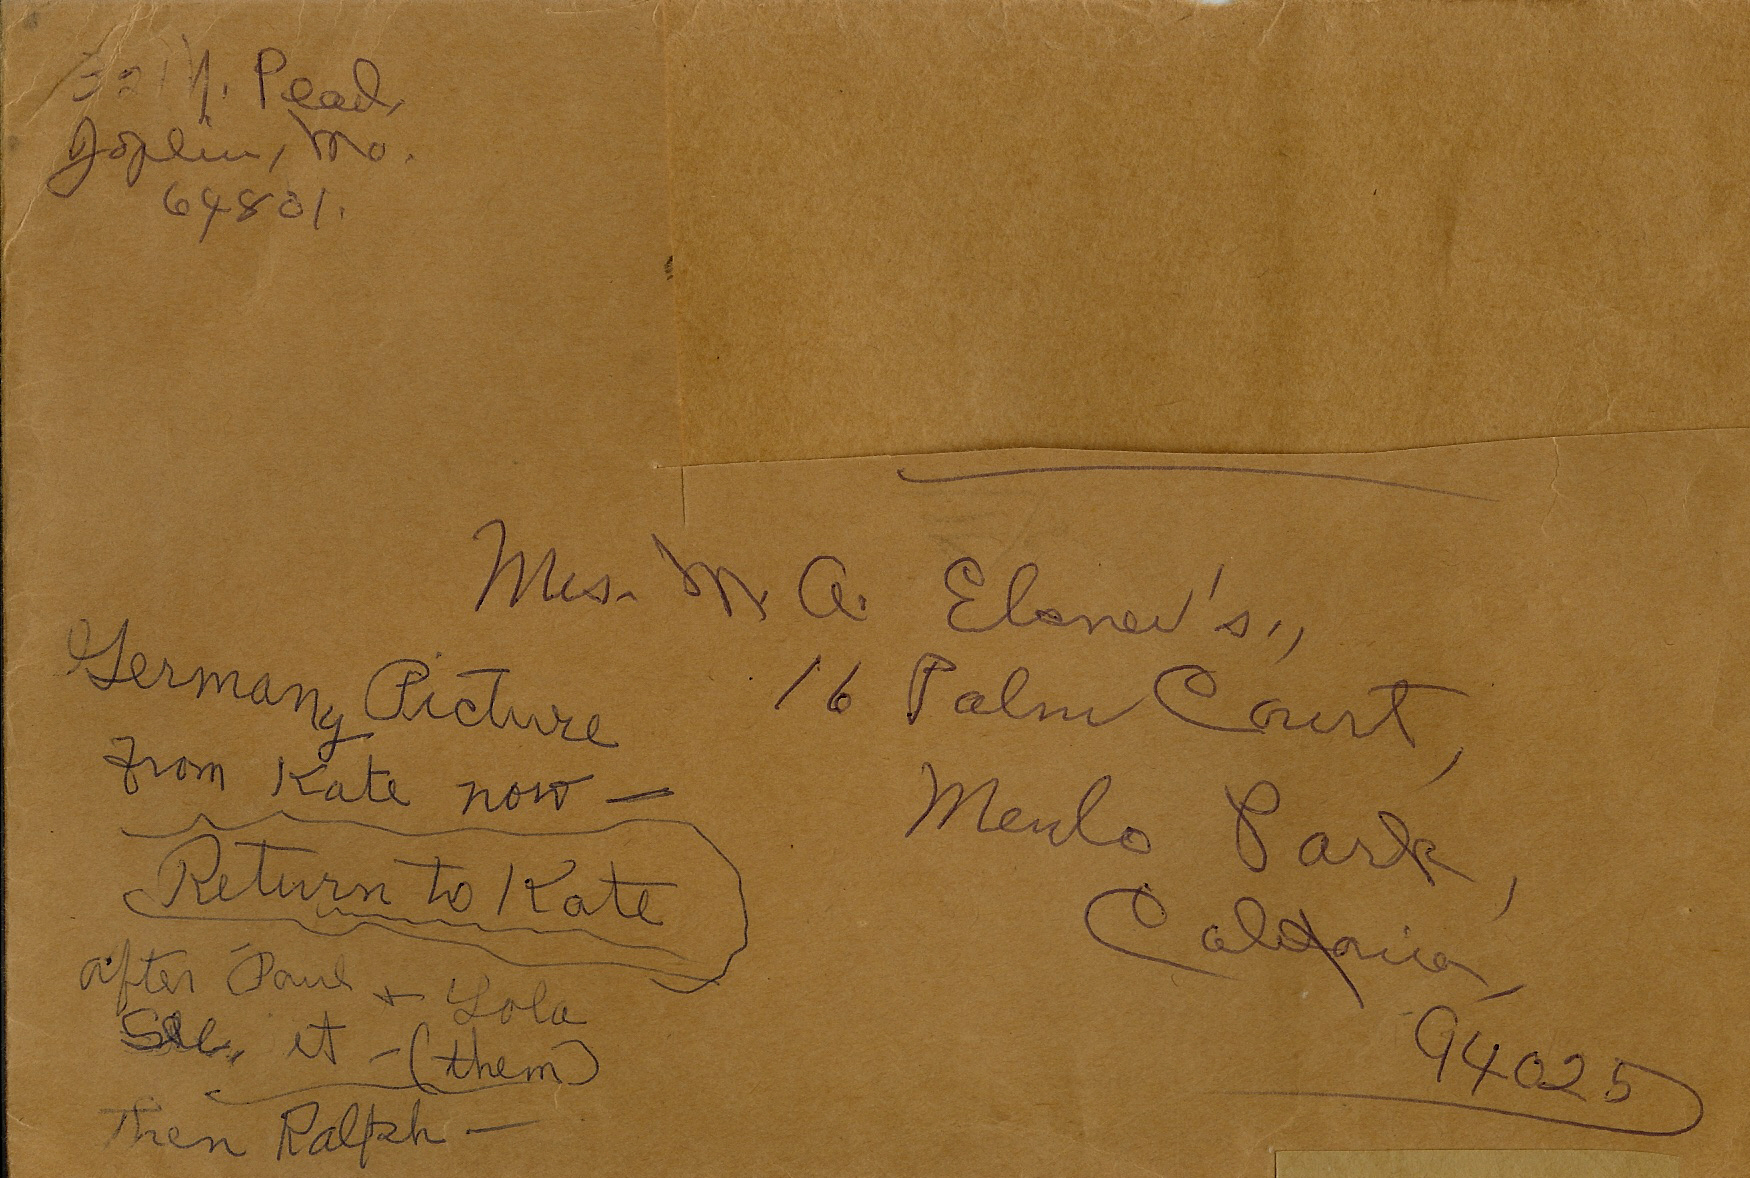 N. Pearl,
Joplin, Mo.
64801.
Mrs. M. A. Elsner's,
16 Palm Court,
Menlo Park,
California,
94025
Germany Picture
from Kate now —
Return to Kate
after Paul + Lola
See, it - (them)
Then Ralph —